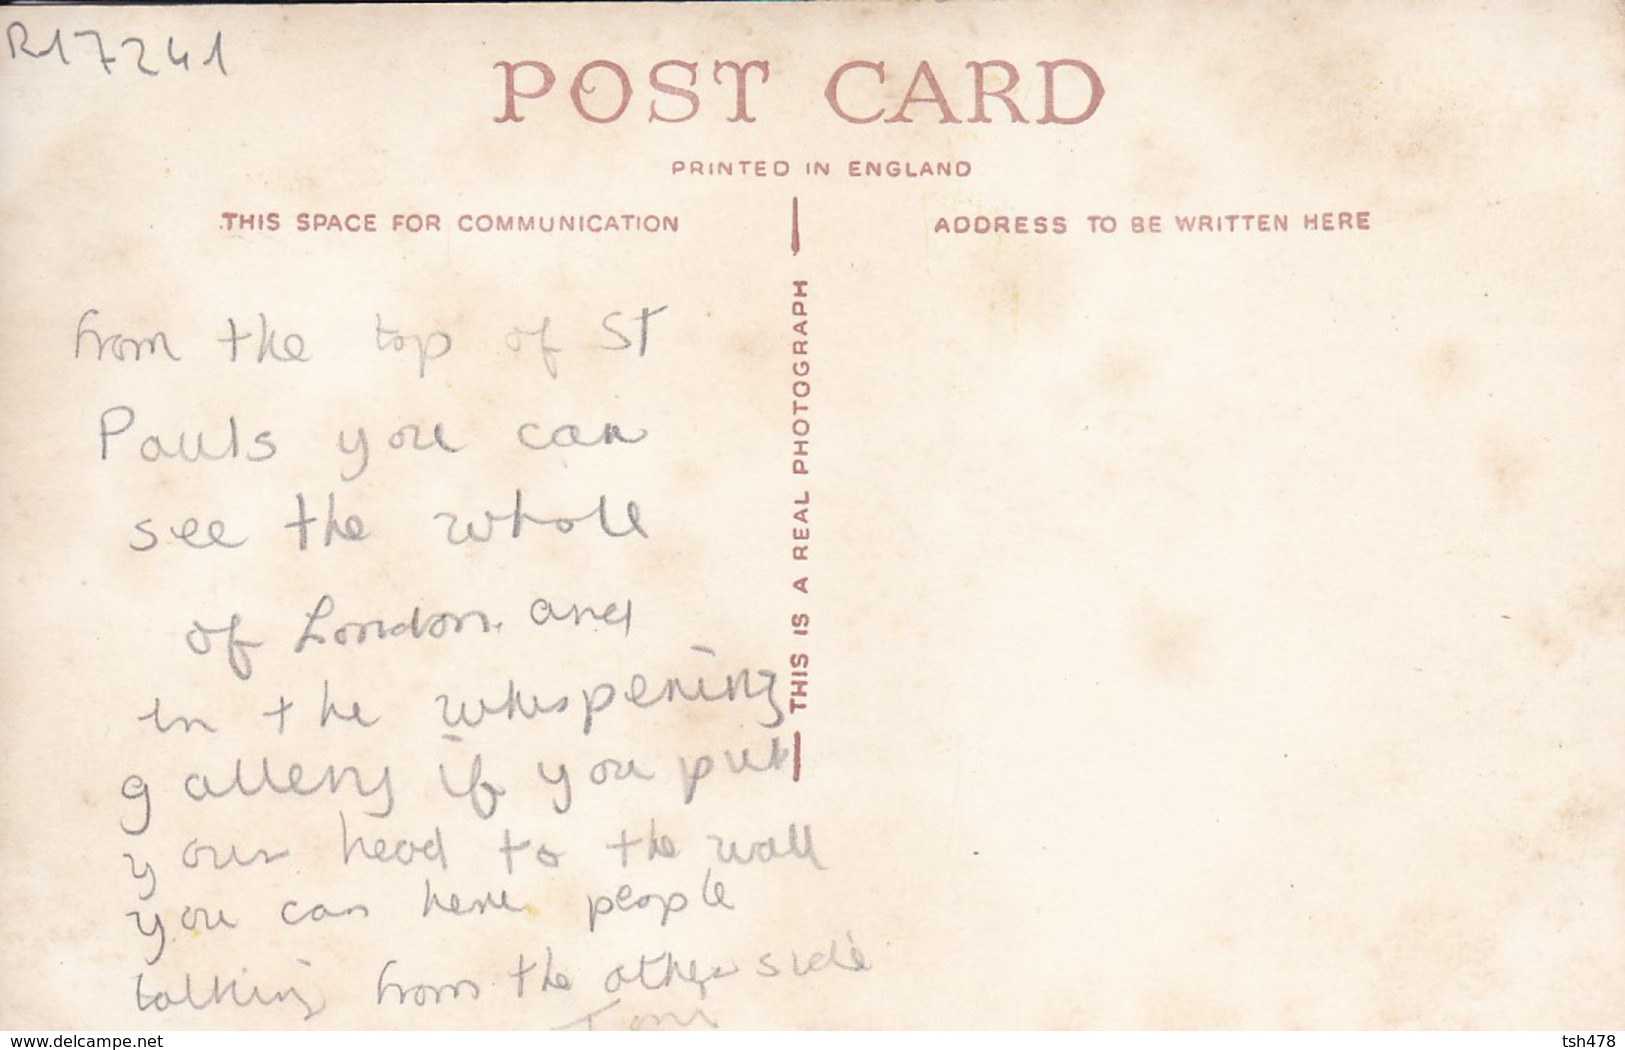 R17241
POST CARD
PRINTED IN ENGLAND
THIS SPACE FOR COMMUNICATION
ADDRESS TO BE WRITTEN HERE
THIS IS A REAL PHOTOGRAPH
from the top of ST
Pauls you can
see the whole
of London. and
in the whispering
gallery if you put
your head to the wall
you can here people
talking from the other side
Tom
www.delcampe.net
tsh478